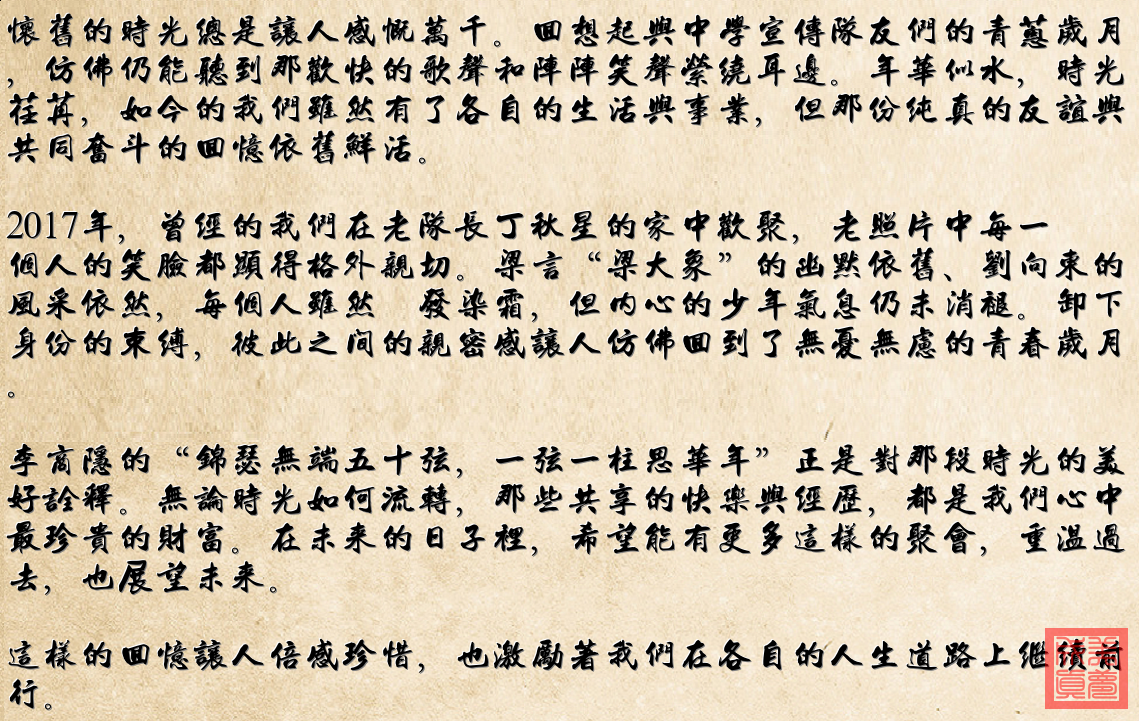 懷舊的時光總是讓人感慨萬千。回想起與中學宣傳隊友們的青蔥歲月
，仿佛仍能聽到那歡快的歌聲和陣陣笑聲縈繞耳邊。年華似水，時光
荏苒，如今的我們雖然有了各自的生活與事業，但那份純真的友誼與
共同奮斗的回憶依舊鮮活。
2017年，曾經的我們在老隊長丁秋星的家中歡聚，老照片中每一
個人的笑臉都顯得格外親切。梁言“梁大象”的幽默依舊、劉向東的
風采依然，每個人雖然 發染霜，但内心的少年氣息仍未消褪。卸下
身份的束縛，彼此之间的親密感讓人仿佛回到了無憂無慮的青春歲月
。
李商隱的“錦瑟無端五十弦，一弦一柱思華年”正是對那段時光的美
好詮釋。無論時光如何流轉，那些共享的快樂與經歷，都是我們心中
最珍貴的財富。在未來的日子裡，希望能有更多這樣的聚會，重溫過
去，也展望未来。
這樣的回憶讓人倍感珍惜，也激勵著我們在各自的人生道路上繼續前
行。